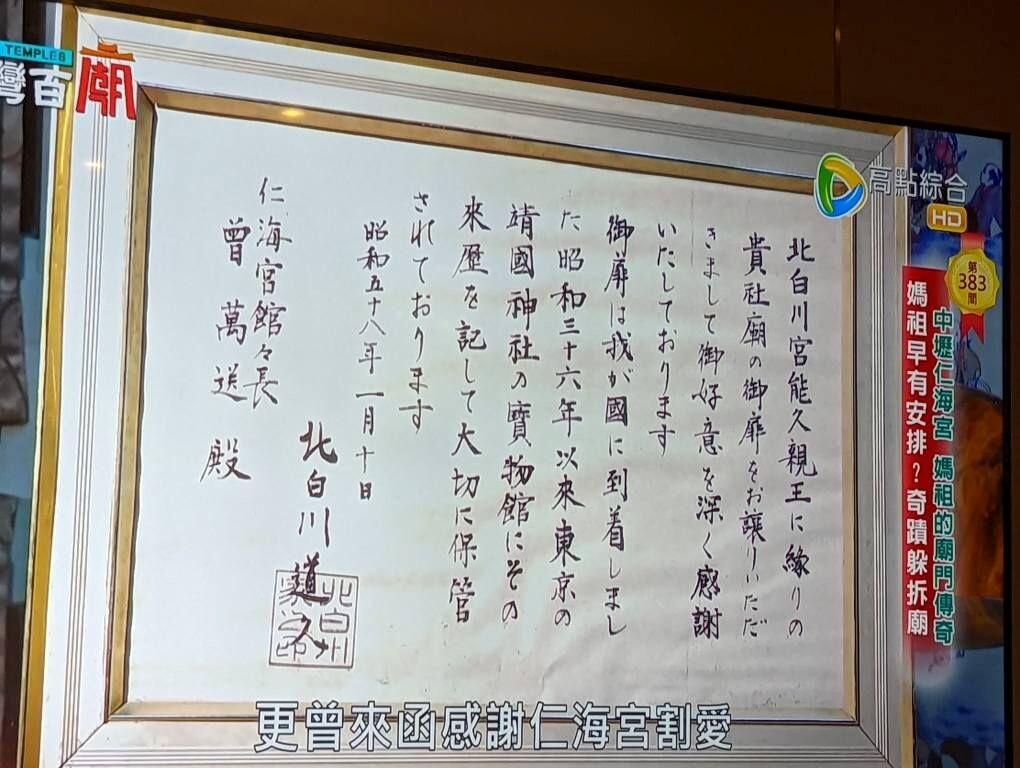 TEMPLES
灣古廟
高點綜合
HD
第
383
間
中壢仁海宮 媽祖的廟門傳奇
媽祖早有安排？奇蹟躲拆廟
北白川宮能久親王に縁りの
貴社廟の御扉をお譲りいただ
きまして御好意を深く感謝
いたしております
御扉は我が國に到着しまし
た昭和三十六年以來東京の
靖國神社の寶物館にその
來歴を記して大切に保管
されております
昭和五十八年一月十日
北白川道久
北白川家印
仁海宮館々長
曾萬送殿
更曾來函感謝仁海宮割愛